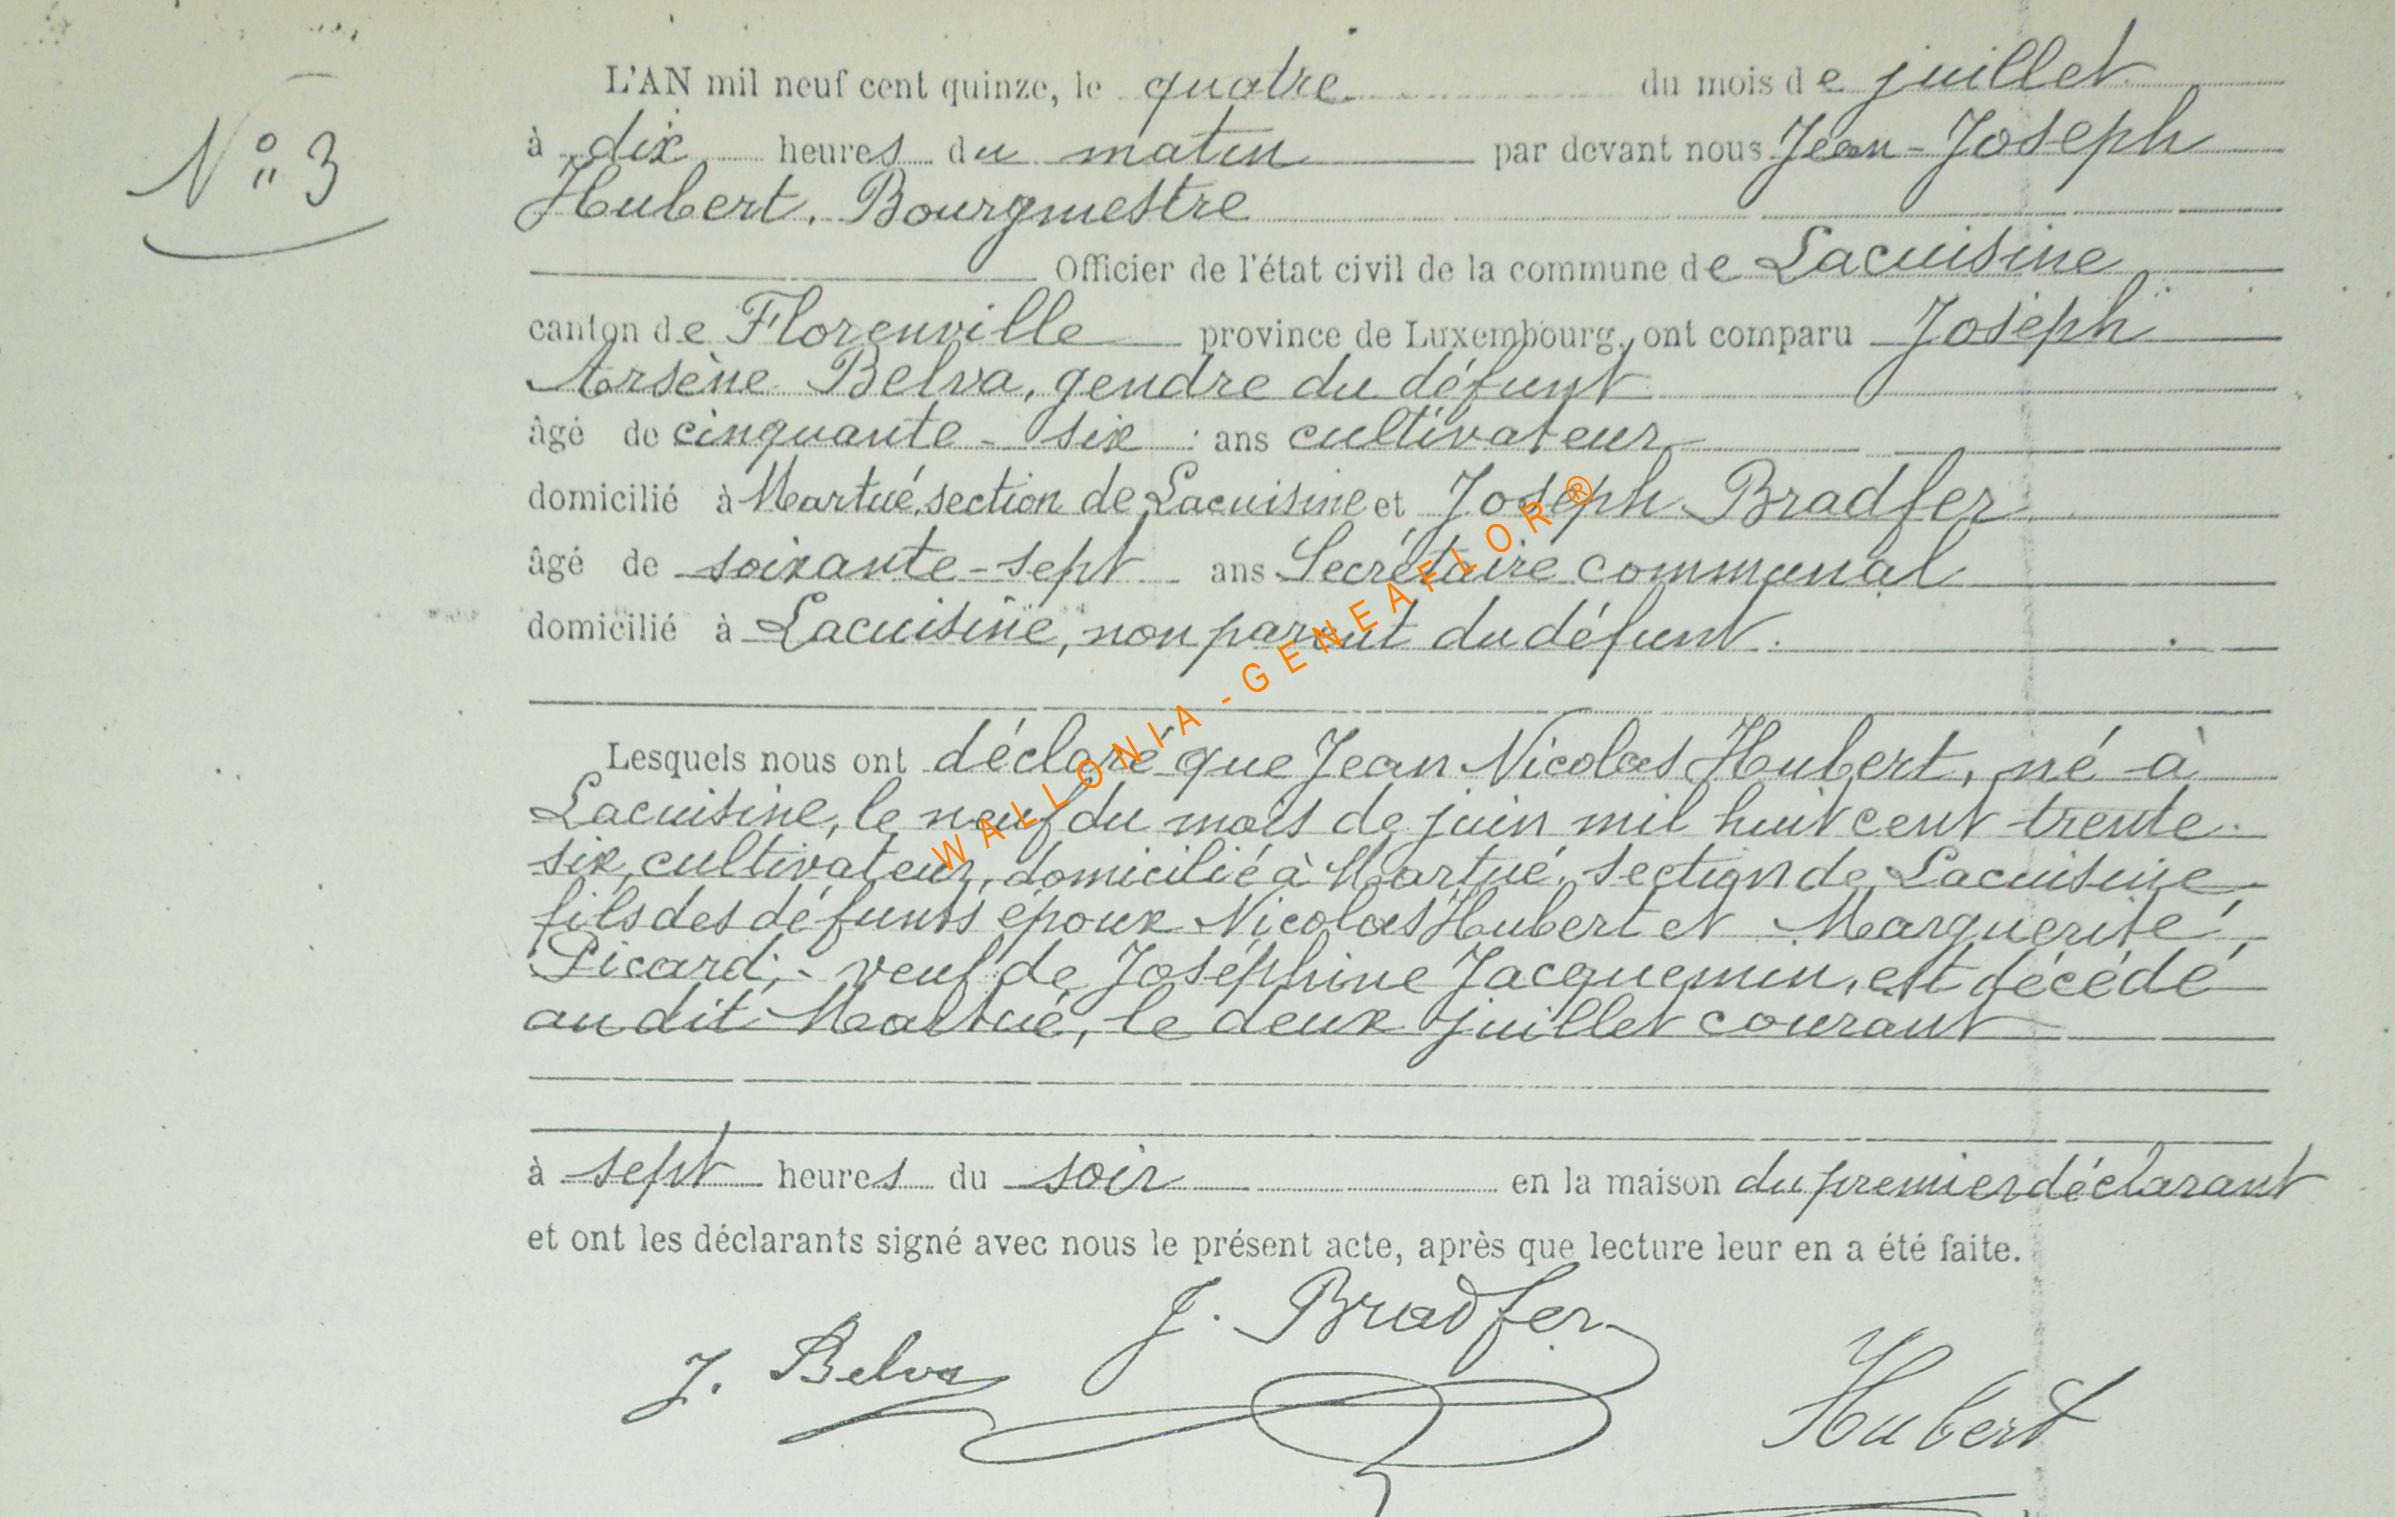 N° 3
L'AN mil neuf cent quinze, le quatre du mois de juillet
à dix heures du matin par devant nous Jean-Joseph
Hubert, Bourgmestre
Officier de l'état civil de la commune de Lacuisine
canton de Florenville province de Luxembourg, ont comparu Joseph
Arsène Belva, gendre du défunt
âgé de cinquante-six ans cultivateur
domicilié à Martué, section de Lacuisine et Joseph Bradfer
âgé de soixante-sept ans Secrétaire communal
domicilié à Lacuisine, non parent du défunt.
Lesquels nous ont déclaré que Jean Nicolas Hubert, né à
Lacuisine, le neuf du mois de juin mil huit cent trente-
six, cultivateur, domicilié à Martué, section de Lacuisine,
fils des défunts époux Nicolas Hubert et Marguerite
Picard; - veuf de Joséphine Jacquemin, est décédé
au dit Martué, le deux juillet courant
à sept heures du soir en la maison du premier déclarant
et ont les déclarants signé avec nous le présent acte, après que lecture leur en a été faite.
J. Belva J. Bradfer Hubert
WALLONIA - GENEAFLOR ®